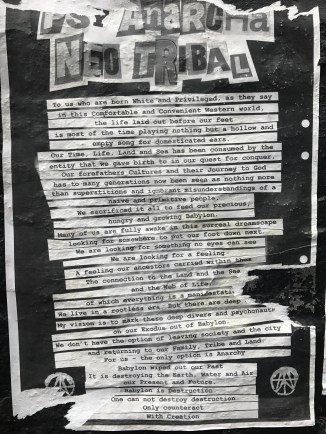 PSY ANARCHA
NEO TRIBAL
To us who are born White and Privileged, as they say
in this Comfortable and Convenient Western world,
the life laid out before our feet
is most of the time playing nothing but a hollow and
empty song for domesticated ears.
Our Time, Life, Land and Sea has been consumed by the
entity that We gave birth to in our quest for conquer.
Our forefathers Cultures and their Journey to God
has to many generations now been seen as nothing more
than superstitions and ignorant misunderstandings of a
naive and primitive people.
We sacrificed it all to feed our precious,
hungry and growing Babylon.
Many of us are fully awake in this surreal dreamscape
looking for somewhere to put our foot down next.
We are looking for something no eyes can see
We are looking for a feeling
A feeling our ancestors carried within them
The connection to the Land and the Sea
and the Web of Life,
of which everything is a manifestation
We live in a rootless era, but there are deep
My vision is to mark these deep divers and psychonauts
on our Exodus out of Babylon.
We don't have the option of leaving society and the city
and returning to our Family, Tribe and Land
For us - the only option is Anarchy
Babylon wiped out our Past
It is destroying the Earth, Water and Air
our Present and Future.
Babylon is Destruction
One can not destroy destruction
Only counteract
With Creation